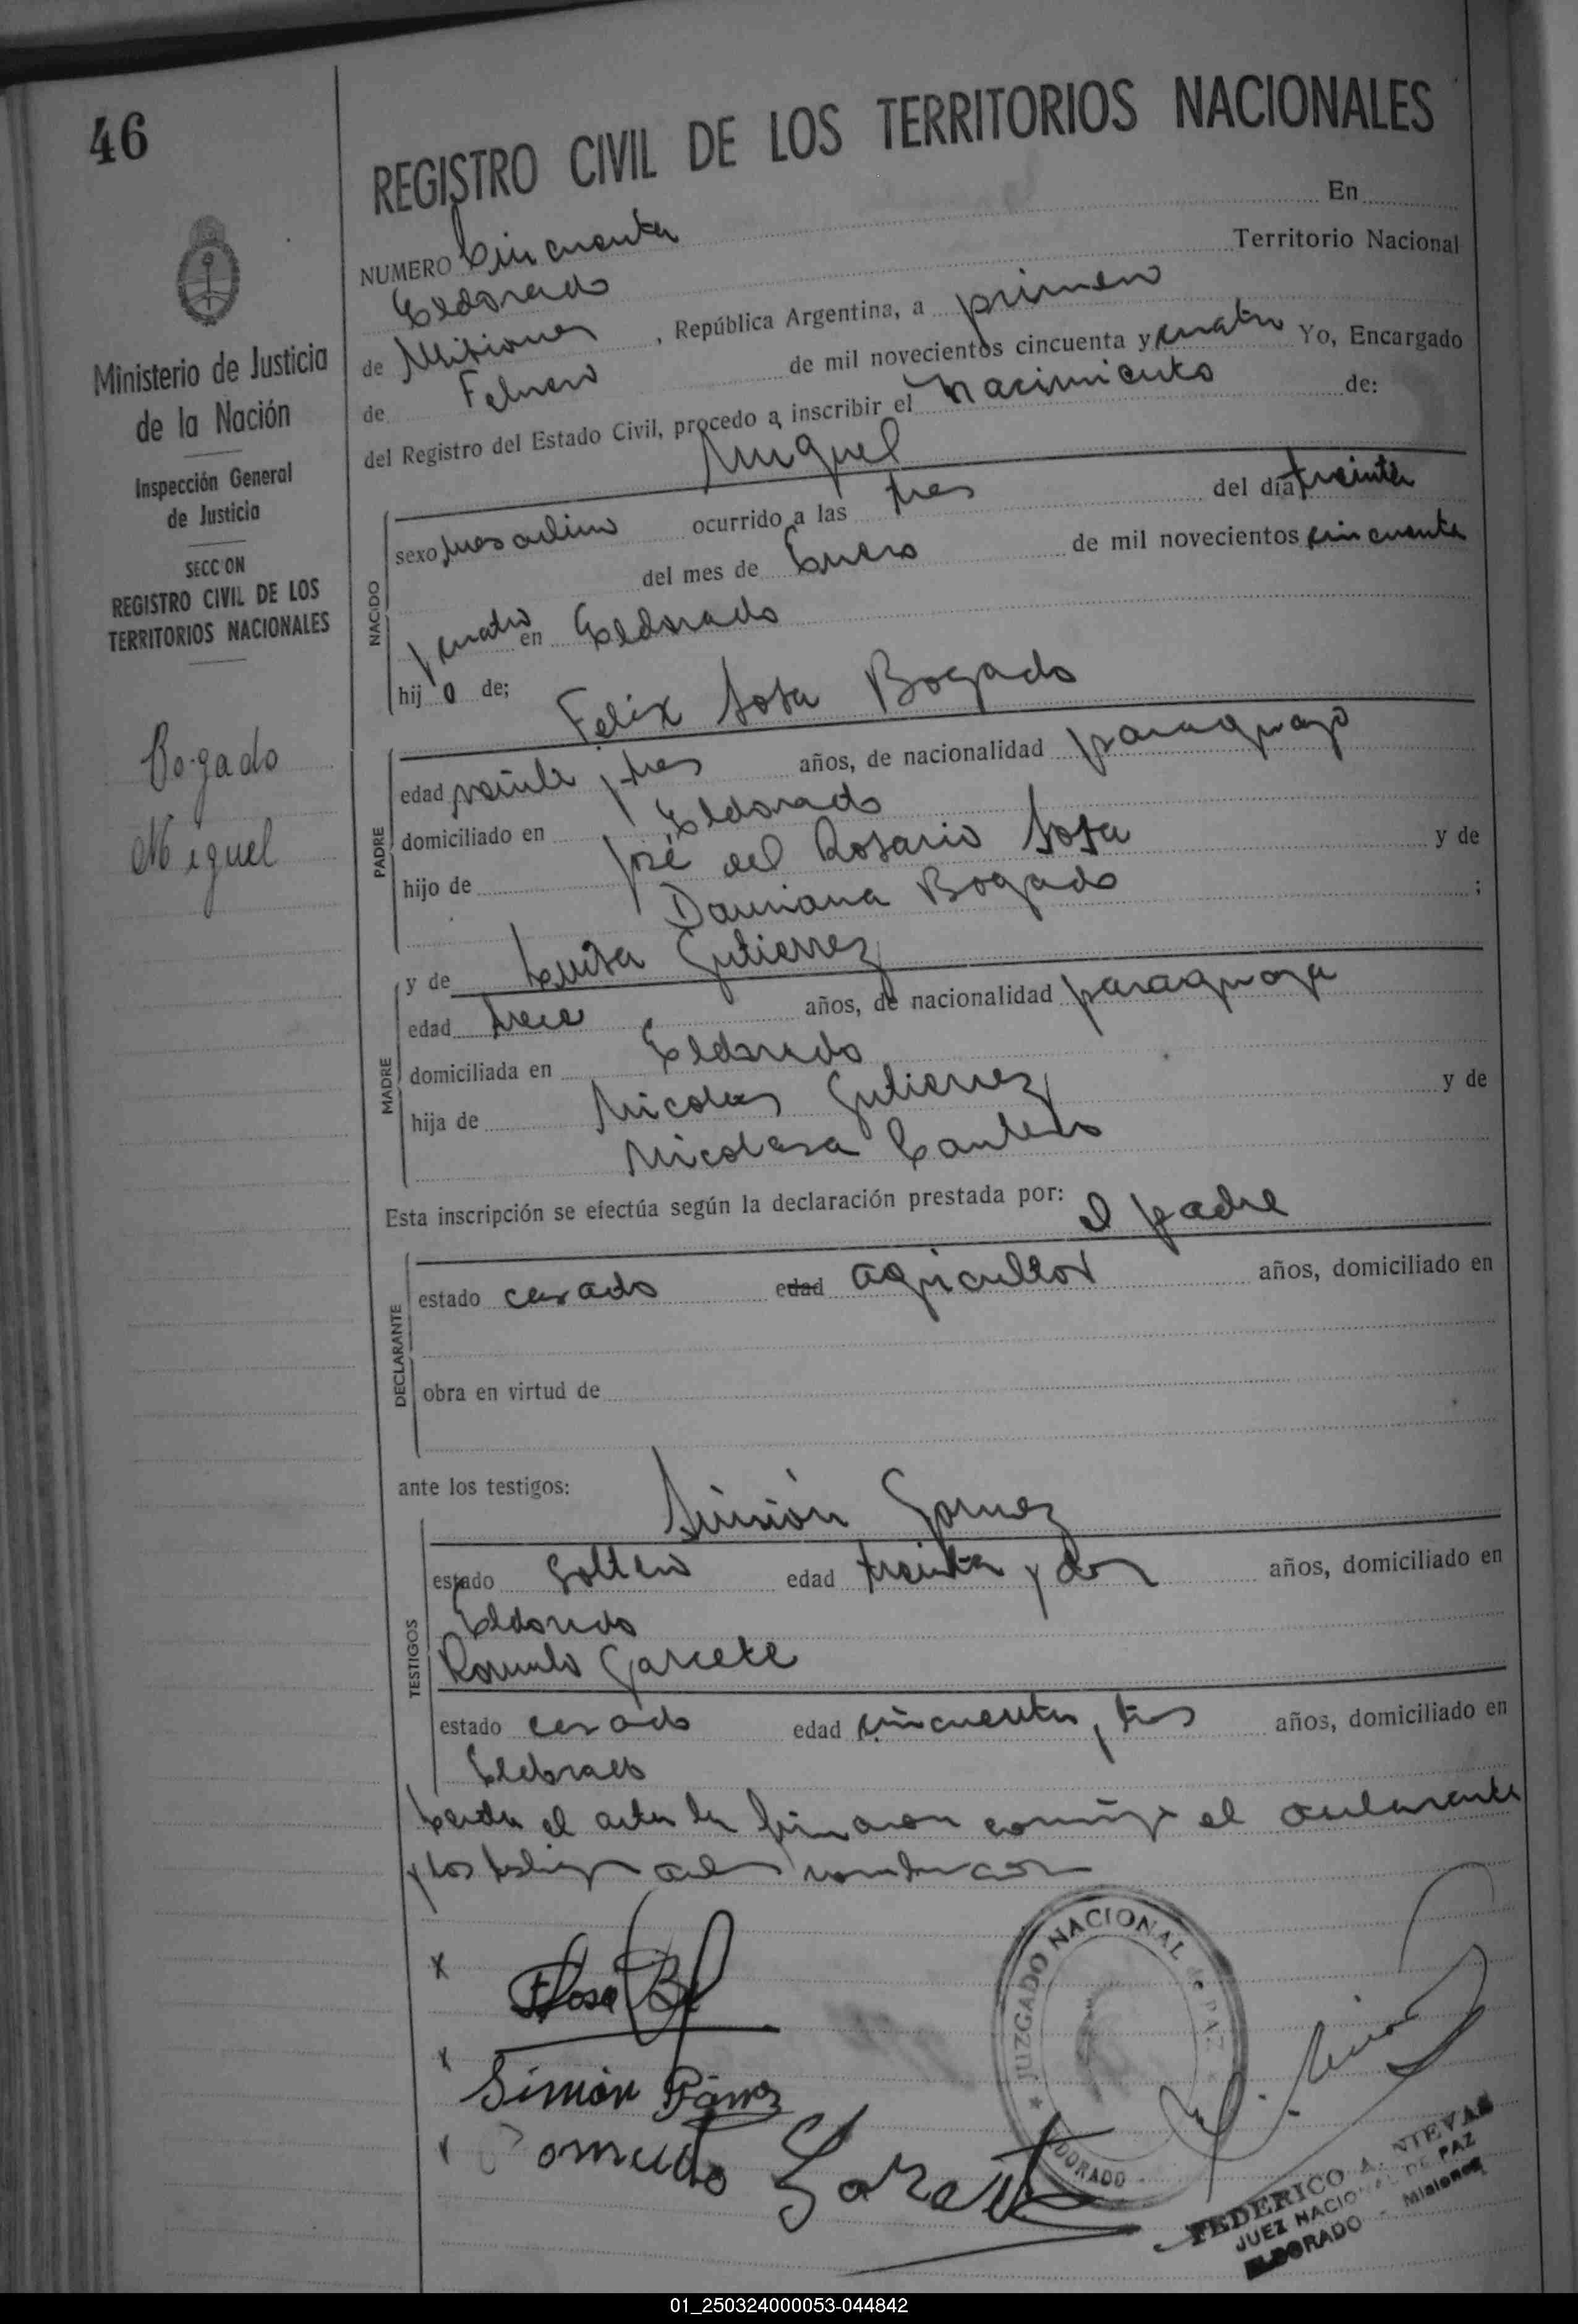 46
Ministerio de Justicia
de la Nación
Inspección General
de Justicia
SECCION
REGISTRO CIVIL DE LOS
TERRITORIOS NACIONALES
Bogado
Miguel
REGISTRO CIVIL DE LOS TERRITORIOS NACIONALES
NUMERO Cincuenta En
Eldorado Territorio Nacional
de Misiones, República Argentina, a primero
de Febrero de mil novecientos cincuenta y cuatro Yo, Encargado
del Registro del Estado Civil, procedo a inscribir el nacimiento de:
Miguel
NACIDO
sexo masculino ocurrido a las tres del día treinta
del mes de Enero de mil novecientos cincuenta
y cuatro en Eldorado
hijo de;
Felix Sosa Bogado
PADRE
edad veinte y tres años, de nacionalidad paraguayo
domiciliado en Eldorado
hijo de José del Rosario Sosa y de
Damiana Bogado ;
y de Luisa Gutierrez
MADRE
edad trece años, de nacionalidad paraguaya
domiciliada en Eldorado
hija de Nicolas Gutierrez y de
Nicolasa Cantero
Esta inscripción se efectúa según la declaración prestada por: el padre
DECLARANTE
estado casado edad agricultor años, domiciliado en
obra en virtud de
ante los testigos: Simión Gomez
TESTIGOS
estado soltero edad treinta y dos años, domiciliado en
Eldorado
Romulo Garcete
estado casado edad cincuenta y tres años, domiciliado en
Eldorado
Leida el acta la firmaron conmigo el declarante
y los testigos
x
x Simón
x Romulo Garcete
JUZGADO NACIONAL de PAZ
ELDORADO
FEDERICO A. NIEVAS
JUEZ NACIONAL DE PAZ
ELDORADO - Misiones
01_250324000053-044842